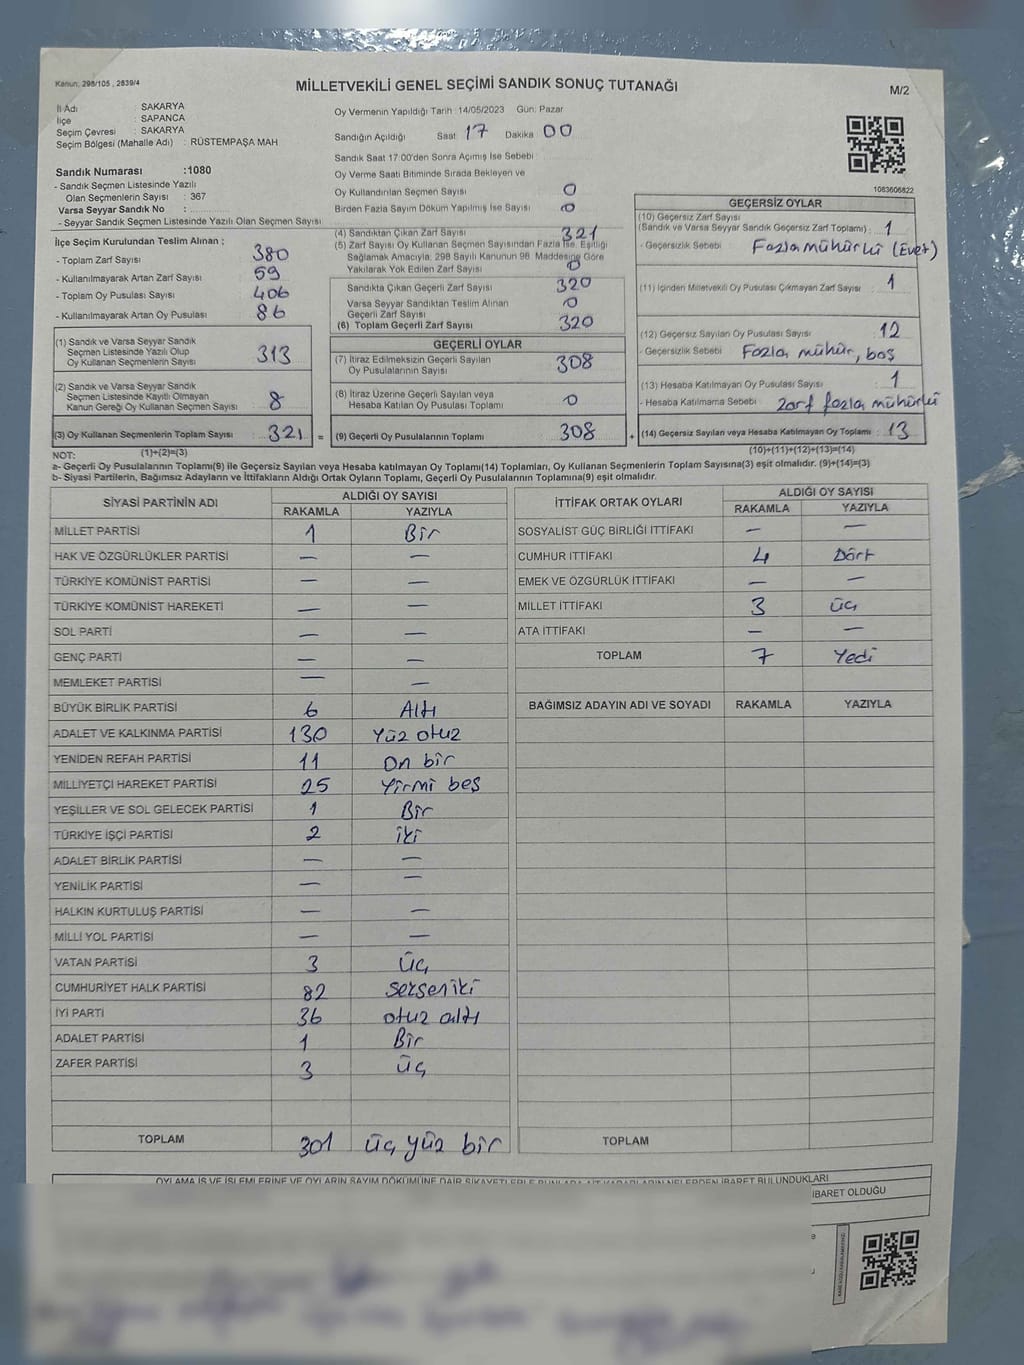 Kanun: 298/105 , 2839/4
MİLLETVEKİLİ GENEL SEÇİMİ SANDIK SONUÇ TUTANAĞI
M/2
İl Adı : SAKARYA
İlçe : SAPANCA
Seçim Çevresi : SAKARYA
Seçim Bölgesi (Mahalle Adı) : RÜSTEMPAŞA MAH
Sandık Numarası :1080
- Sandık Seçmen Listesinde Yazılı
Olan Seçmenlerin Sayısı : 367
Varsa Seyyar Sandık No :
- Seyyar Sandık Seçmen Listesinde Yazılı Olan Seçmen Sayısı
Oy Vermenin Yapıldığı Tarih :14/05/2023 Gün: Pazar
Sandığın Açıldığı Saat 17 Dakika 00
Sandık Saat 17:00'den Sonra Açımış İse Sebebi
Oy Verme Saati Bitiminde Sırada Bekleyen ve
Oy Kullandırılan Seçmen Sayısı 0
Birden Fazla Sayım Döküm Yapılmış İse Sayısı 0
1083606822
İlçe Seçim Kurulundan Teslim Alınan ;
- Toplam Zarf Sayısı 380
- Kullanılmayarak Artan Zarf Sayısı 59
- Toplam Oy Pusulası Sayısı 406
- Kullanılmayarak Artan Oy Pusulası 86
(1) Sandık ve Varsa Seyyar Sandık
Seçmen Listesinde Yazılı Olup
Oy Kullanan Seçmenlerin Sayısı 313
(2) Sandık ve Varsa Seyyar Sandık
Seçmen Listesinde Kayıtlı Olmayan
Kanun Gereği Oy Kullanan Seçmen Sayısı 8
(3) Oy Kullanan Seçmenlerin Toplam Sayısı : 321 =
(1)+(2)=(3)
(4) Sandıktan Çıkan Zarf Sayısı 321
(5) Zarf Sayısı Oy Kullanan Seçmen Sayısından Fazla İse, Eşitliği
Sağlamak Amacıyla; 298 Sayılı Kanunun 98. Maddesine Göre
Yakılarak Yok Edilen Zarf Sayısı 0
Sandıkta Çıkan Geçerli Zarf Sayısı 320
Varsa Seyyar Sandıktan Teslim Alınan
Geçerli Zarf Sayısı 0
(6) Toplam Geçerli Zarf Sayısı 320
GEÇERLİ OYLAR
(7) İtiraz Edilmeksizin Geçerli Sayılan
Oy Pusulalarının Sayısı 308
(8) İtiraz Üzerine Geçerli Sayılan veya
Hesaba Katılan Oy Pusulası Toplamı 0
(9) Geçerli Oy Pusulalarının Toplamı 308 +
GEÇERSİZ OYLAR
(10) Geçersiz Zarf Sayısı
(Sandık ve Varsa Seyyar Sandık Geçersiz Zarf Toplamı) : 1
- Geçersizlik Sebebi Fazla mühürlü (Evet)
(11) İçinden Milletvekili Oy Pusulası Çıkmayan Zarf Sayısı 1
(12) Geçersiz Sayılan Oy Pusulası Sayısı 12
- Geçersizlik Sebebi Fazla mühür, boş
(13) Hesaba Katılmayan Oy Pusulası Sayısı 1
- Hesaba Katılmama Sebebi zarf fazla mühürlü
(14) Geçersiz Sayılan veya Hesaba Katılmayan Oy Toplamı : 13
(10)+(11)+(12)+(13)=(14)
NOT:
a- Geçerli Oy Pusulalarının Toplamı(9) ile Geçersiz Sayılan veya Hesaba katılmayan Oy Toplamı(14) Toplamları, Oy Kullanan Seçmenlerin Toplam Sayısına(3) eşit olmalıdır. (9)+(14)=(3)
b- Siyasi Partilerin, Bağımsız Adayların ve İttifakların Aldığı Ortak Oyların Toplamı, Geçerli Oy Pusulalarının Toplamına(9) eşit olmalıdır.
SİYASİ PARTİNİN ADI ALDIĞI OY SAYISI
RAKAMLA YAZIYLA
MİLLET PARTİSİ 1 Bir
HAK VE ÖZGÜRLÜKLER PARTİSİ — —
TÜRKİYE KOMÜNİST PARTİSİ — —
TÜRKİYE KOMÜNİST HAREKETİ — —
SOL PARTİ — —
GENÇ PARTİ — —
MEMLEKET PARTİSİ — —
BÜYÜK BİRLİK PARTİSİ 6 Altı
ADALET VE KALKINMA PARTİSİ 130 Yüz otuz
YENİDEN REFAH PARTİSİ 11 On bir
MİLLİYETÇİ HAREKET PARTİSİ 25 Yirmi beş
YEŞİLLER VE SOL GELECEK PARTİSİ 1 Bir
TÜRKİYE İŞÇİ PARTİSİ 2 iki
ADALET BİRLİK PARTİSİ — —
YENİLİK PARTİSİ — —
HALKIN KURTULUŞ PARTİSİ — —
MİLLİ YOL PARTİSİ — —
VATAN PARTİSİ 3 Üç
CUMHURİYET HALK PARTİSİ 82 seksen iki
İYİ PARTİ 36 otuz altı
ADALET PARTİSİ 1 Bir
ZAFER PARTİSİ 3 üç
TOPLAM 301 üç yüz bir
İTTİFAK ORTAK OYLARI ALDIĞI OY SAYISI
RAKAMLA YAZIYLA
SOSYALİST GÜÇ BİRLİĞİ İTTİFAKI — —
CUMHUR İTTİFAKI 4 Dört
EMEK VE ÖZGÜRLÜK İTTİFAKI — —
MİLLET İTTİFAKI 3 üç
ATA İTTİFAKI — —
TOPLAM 7 Yedi
BAĞIMSIZ ADAYIN ADI VE SOYADI RAKAMLA YAZIYLA
TOPLAM
OYLAMA İŞ VE İŞLEMLERİNE VE OYLARIN SAYIM DÖKÜMÜNE DAİR ŞİKAYETLERLE BUNLARA AİT KARARLARIN NELERDEN İBARET BULUNDUKLARI
İBARET OLDUĞU